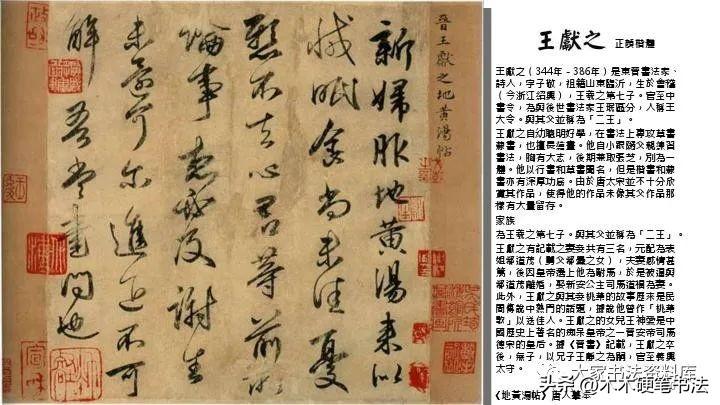 晉王獻之地黃湯帖
新婦服地黃湯来似
減眠食尚未佳憂
懸不去心君等前所
論事想必及謝生
未還可尔進退不可
解吾當書問也
王獻之
王獻之（344年－386年）是東晉書法家、
詩人，字子敬，祖籍山東臨沂，生於會稽
（今浙江紹興），王羲之第七子。官至中
書令，為與後世書法家王珉區分，人稱王
大令。與其父並稱為「二王」。
王獻之自幼聰明好學，在書法上專攻草書
隸書，也擅長繪畫。他自小跟隨父親練習
書法，胸有大志，後期兼取張芝，別為一
體。他以行書和草書聞名，但是楷書和隸
書亦有深厚功底。由於唐太宗並不十分欣
賞其作品，使得他的作品未像其父作品那
樣有大量留存。
家族
為王羲之第七子。與其父並稱為「二王」。
王獻之有記載之妻妾共有三名，元配為表
姐郗道茂（舅父郗曇之女），夫妻感情甚
篤，後因皇帝選上他為駙馬，於是被逼與
郗道茂離婚，娶新安公主司馬道福為妻。
此外，王獻之與其妾桃葉的故事歷來是民
間傳說中熱門的話題，據說他曾作「桃葉
歌」以送佳人。王獻之的女兒王神愛是中
國歷史上著名的痴呆皇帝之一晉安帝司馬
德宗的皇后。據《晉書》記載，王獻之卒
後，無子，以兄子王靜之為嗣，官至義興
太守。
《地黃湯帖》唐人摹本
大家书法资料库
头条 @木木硬笔书法